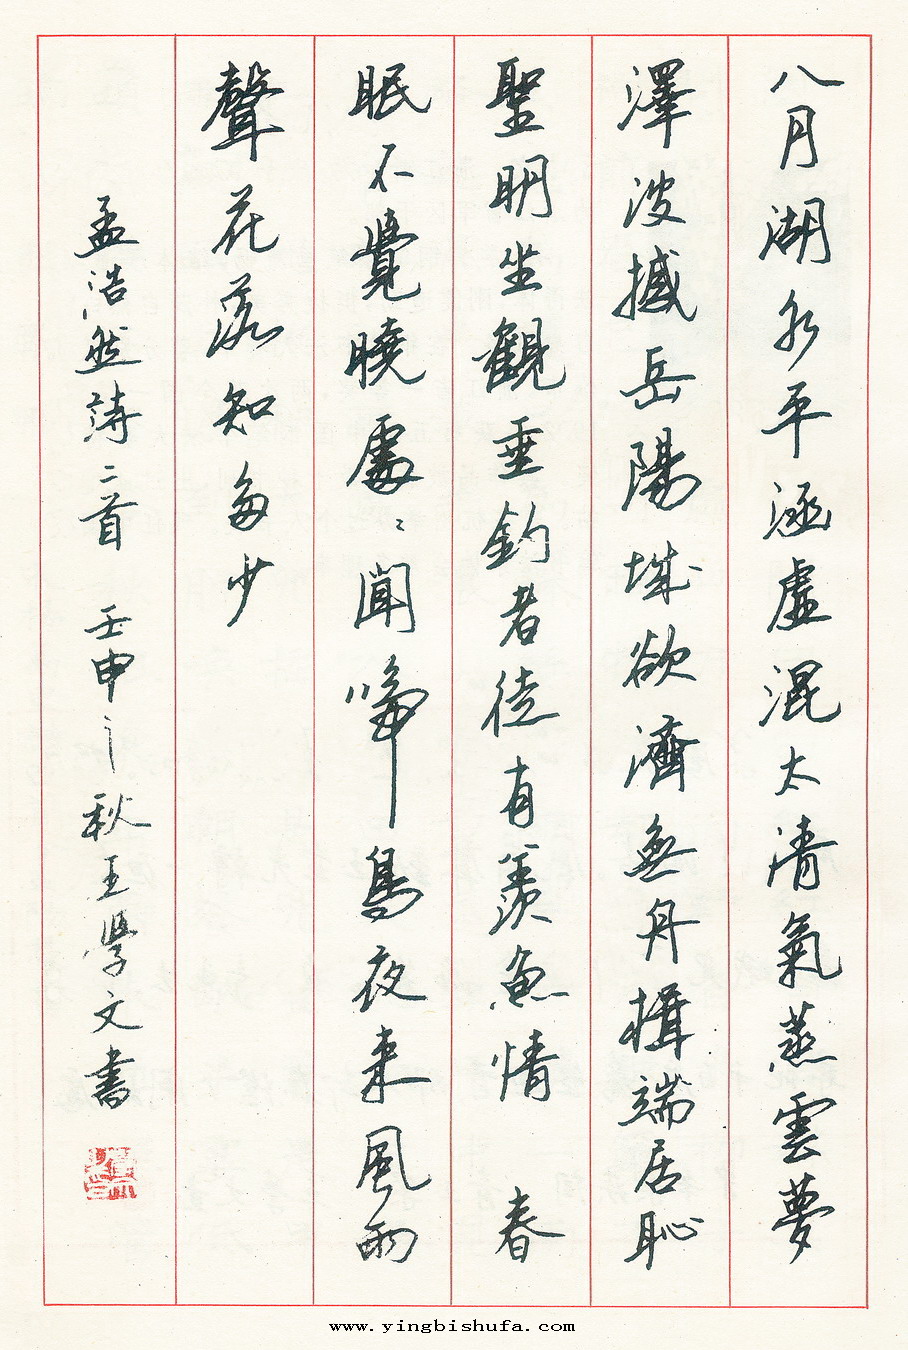 八月湖水平涵虛混太清氣蒸雲夢
澤波撼岳陽城欲濟無舟楫端居恥
聖明坐觀垂釣者徒有羨魚情 春
眠不覺曉處〻聞啼鳥夜來風雨
聲花落知多少
孟浩然詩二首 壬申之秋王學文書
www.yingbishufa.com